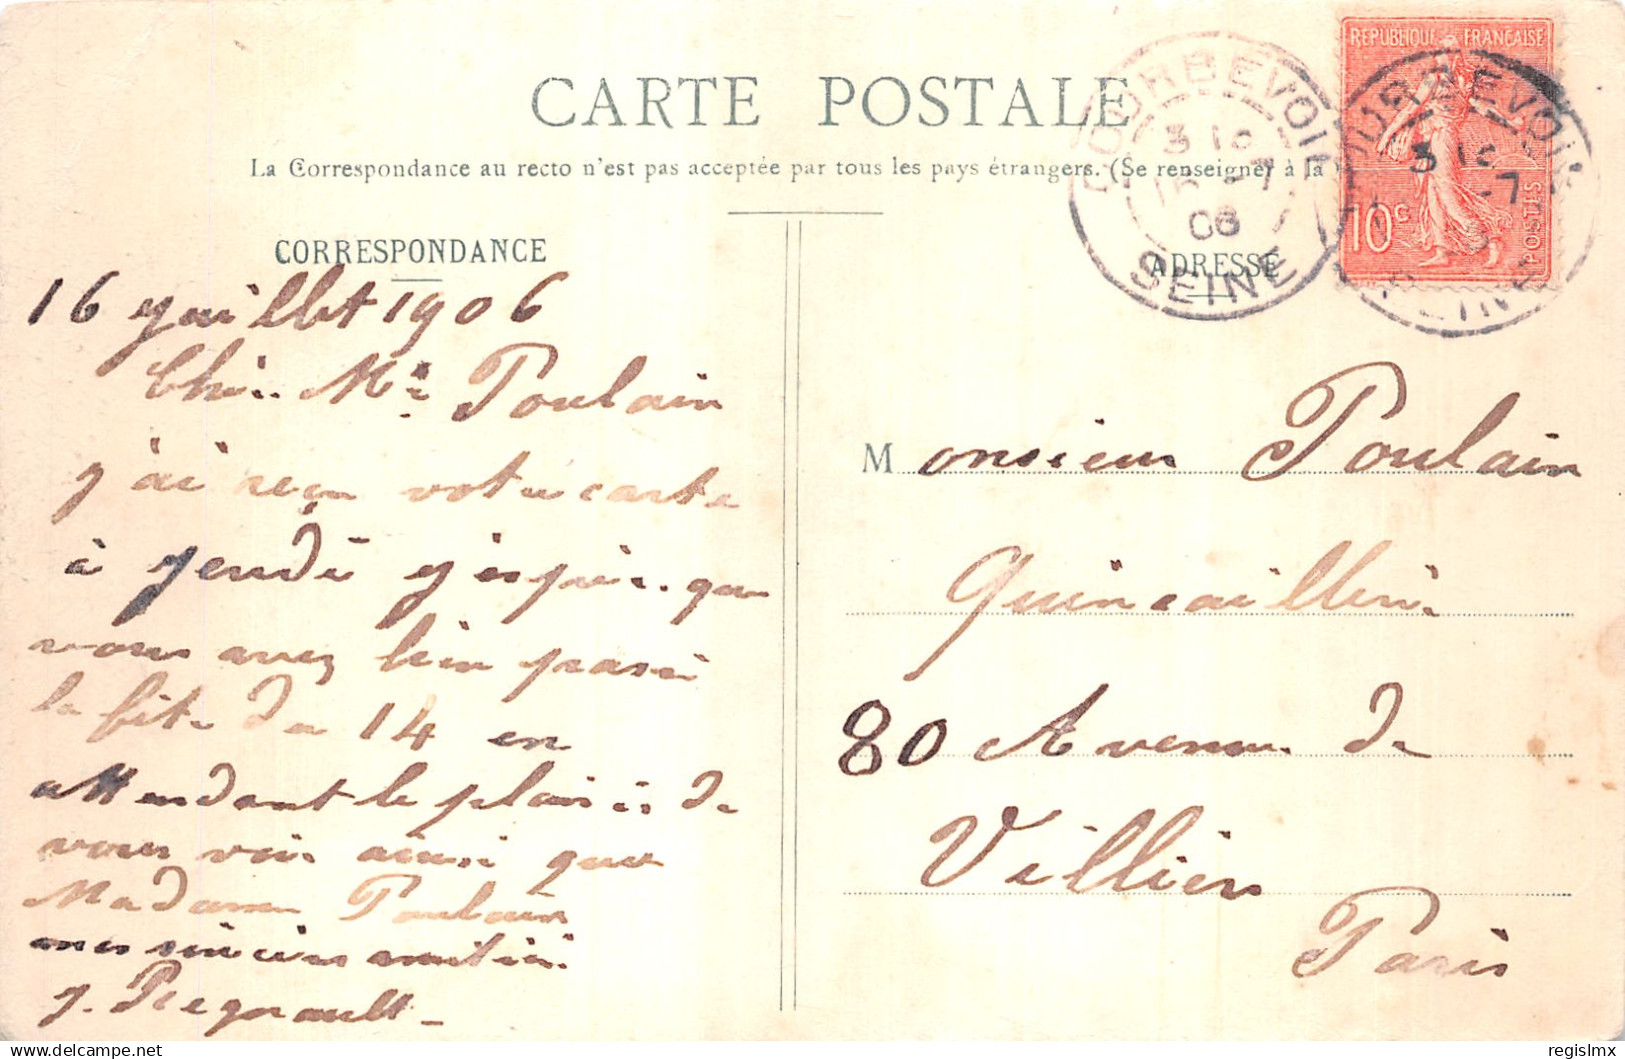 CARTE POSTALE
La Correspondance au recto n'est pas acceptée par tous les pays étrangers. (Se renseigner à la
CORRESPONDANCE
16 yuillet 1906
Cher Mr Poulain
j'ai reçu votre carte
à jeudi j'espère que
vous avez bien passé
la fête du 14 en
attendant le plaisir de
vous voir ainsi que
Madame Poulain
mes sincères amitiés
J. Regnault
ADRESSE
Monsieur Poulain
Quincaillerie
80 Avenue de
Villiers
Paris
REPUBLIQUE FRANÇAISE
10c
POSTES
COURBEVOIE
3 16
16 -7
06
SEINE
COURBEVOIE
3 16
-7
SEINE
regislmx
delcampe.net